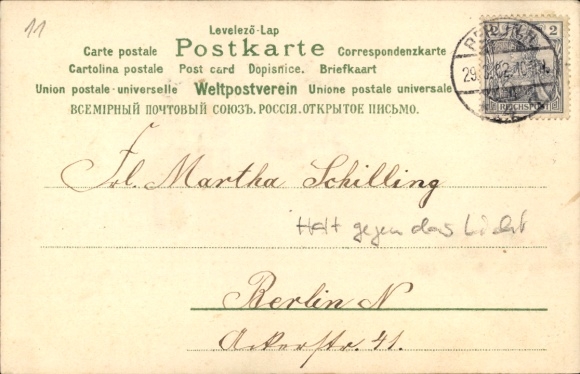 11
Levelező-Lap
Carte postale Postkarte Correspondenzkarte
Cartolina postale Post card Dopisnice. Briefkaart
Union postale universelle Weltpostverein Unione postale universale
ВСЕМІРНЫЙ ПОЧТОВЫЙ СОЮЗЪ. РОССІЯ. ОТКРЫТОЕ ПИСЬМО.
2
BERLIN
REICHSPOST
Frl. Martha Schilling
Halt gegen das Licht
Berlin N
Ackerstr. 41.